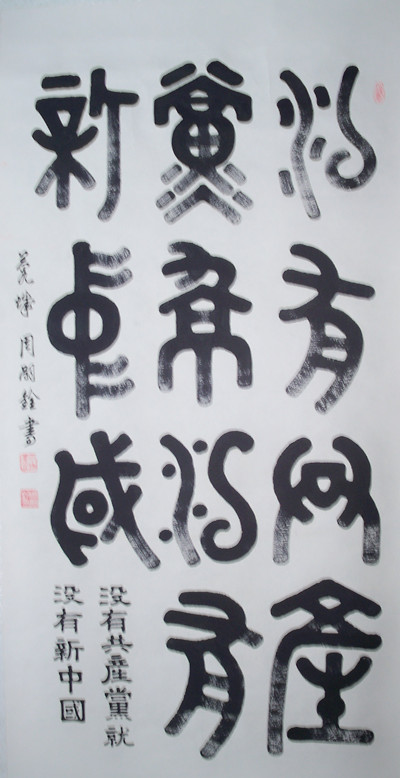 没有共產
黨就没有
新中國
没有共產黨就
没有新中國
周 書